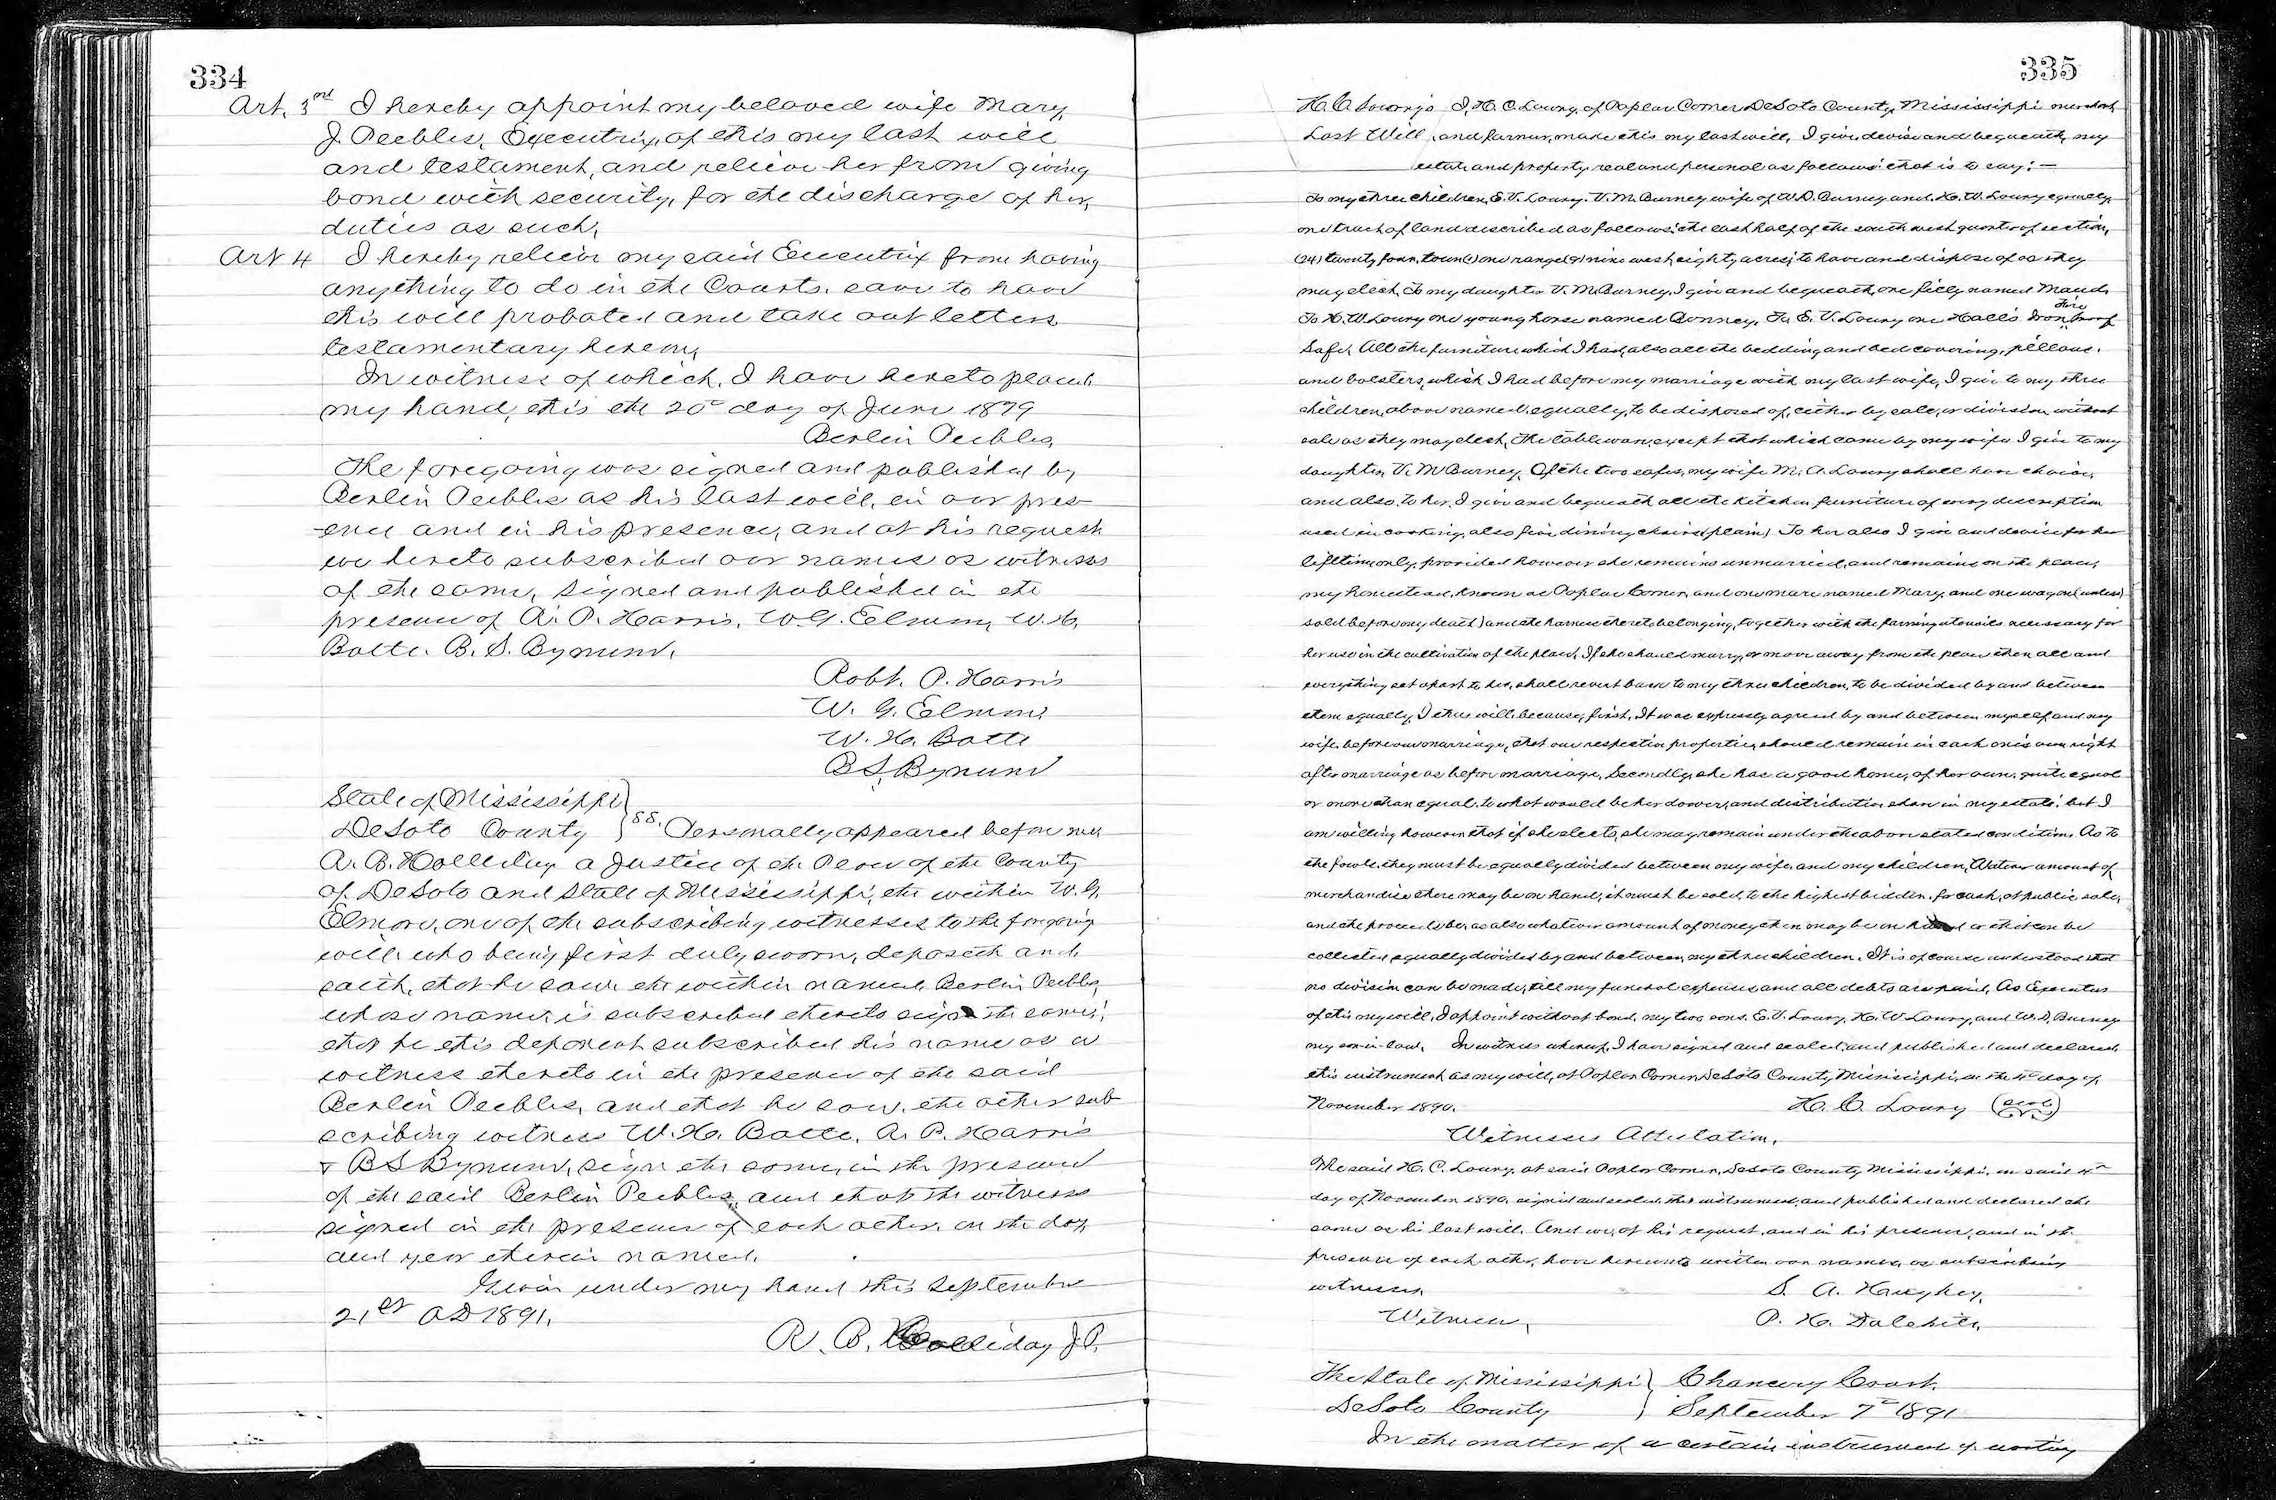 334
Art. 3rd I hereby appoint my beloved wife Mary
J. Peebles, Executrix, of this my last will
and testament, and relieve her from giving
bond with security, for the discharge of her
duties as such,
Art 4 I hereby relieve my said Executrix from having
anything to do in the Courts. save to have
this will probated and take out letters
testamentary hereon,
In witness of which, I have hereto placed
my hand, this the 20th day of June 1879
Berlin Peebles,
The foregoing was signed and published by
Berlin Peebles as his last will, in our pres-
-ence and in his presence, and at his request
we hereto subscribed our names as witnesses
of the same, signed and published in the
presence of R. P. Harris, W. G. Elmore, W. H.
Botte. B. S. Bynum,
Robt. P. Harris
W. G. Elmore
W. H. Botte
B S Bynum
State of Mississippi
DeSoto County } SS. Personally appeared before me
R. B. Holliday a Justice of the Peace of the County
of DeSoto and State of Mississippi, the within W. G.
Elmore, one of the subscribing witnesses to the foregoing
will, who being first duly sworn, deposeth and
saith, that he saw the within named Berlin Peebles,
whose name is subscribed thereto sign the same,
that he this deponent subscribed his name as a
witness thereto in the presence of the said
Berlin Peebles, and that he saw the other sub
scribing witness W. H. Botte, R. P. Harris
& B S Bynum, sign the same, in the presence
of the said Berlin Peebles and that the witnesses
signed in the presence of each other, on the day
and year therein named.
Given under my hand this September
21st AD 1891.
R. B. Holliday J.P.
335
H. C. Loury's I, H. C. Loury, of Poplar Corner DeSoto County, Mississippi merchant
Last Will, and farmer, make this my last will, I give, devise and bequeath, my
estate and property, real and personal as follows that is to say: —
To my three children, E. V. Loury. V. M. Burney wife of W. D. Burney and H. W. Loury equally,
one tract of land described as follows: the east half of the south west quarter of section,
(24) twenty four, town (1) one range (9) nine west, eighty acres; to have and dispose of as they
may elect, To my daughter V. M. Burney, I give and bequeath, one filly named Maud,
To H. W. Loury one young horse named Bonney, To E. V. Loury one Hall's Iron Fire proof
Safe, All the furniture which I had, also all the bedding and bed covering, pillows.
and bolsters, which I had before my marriage with my last wife, I give to my three
children, above named equally, to be disposed of, either by sale, or division, without
sale as they may elect, The tableware, except that which came by my wife I give to my
daughter, V. M Burney, Of the two safes, my wife M. A. Loury shall have choice,
and also, to her, I give and bequeath all the kitchen furniture of every description
used in cooking, also five dining chairs (plain) To her also I give and devise, for her
lifetime only, provided however she remains unmarried, and remains on the place,
my homestead, known as Poplar Corner, and one mare named Mary, and one wagon (unless
sold before my death) and the harness thereto belonging, together with the farming utensils necessary for
her use in the cultivation of the place, If she should marry, or move away from the place then all and
everything set apart to her, shall revert back to my three children, to be divided by and between
them equally, I thus will, because, first, It was expressly agreed by and between myself and my
wife, before our marriage, that our respective properties, should remain in each one's own right
after marriage as before marriage, Secondly, she has a good home, of her own, quite equal
or more than equal, to what would be her dower, and distributive share in my estate, but I
am willing however that if she elects, she may remain under the above stated condition, As to
the fowls, they must be equally divided between my wife, and my children, Watever amount of
merchandise there may be on hand, it must be sold, to the highest bidder, for cash, at public sale,
and the proceeds be, as also whatever amount of money then may be on hand or that can be
collected equally divided by and between, my three children, It is of course understood that
no division can be made, till my funeral expenses and all debts are paid, As Executors
of this my will, I appoint without bond, my two sons, E. V. Loury, H. W Loury, and W. D. Burney
my son-in-law, In witness whereof, I have signed and sealed, and published and declared,
this instrument as my will, at Poplar Corner, DeSoto County, Mississippi, on the 4th day of,
November 1890. H. C. Loury (seal)
Witnesses Attestation,
The said H. C. Loury, at said Poplar Corner, DeSoto County Mississippi, on said 4th
day of November 1890, signed and sealed this instrument, and published and declared the
same as his last will, And we, at his request, and in his presence, and in the
presence of each other, have hereunto written our names, as subscribing
witnesses, S. A. Haughey,
Witnesses, P. H. Dalehite,
The State of Mississippi } Chancery Court,
DeSoto County } September 7th 1891
In the matter of a certain instrument of writing